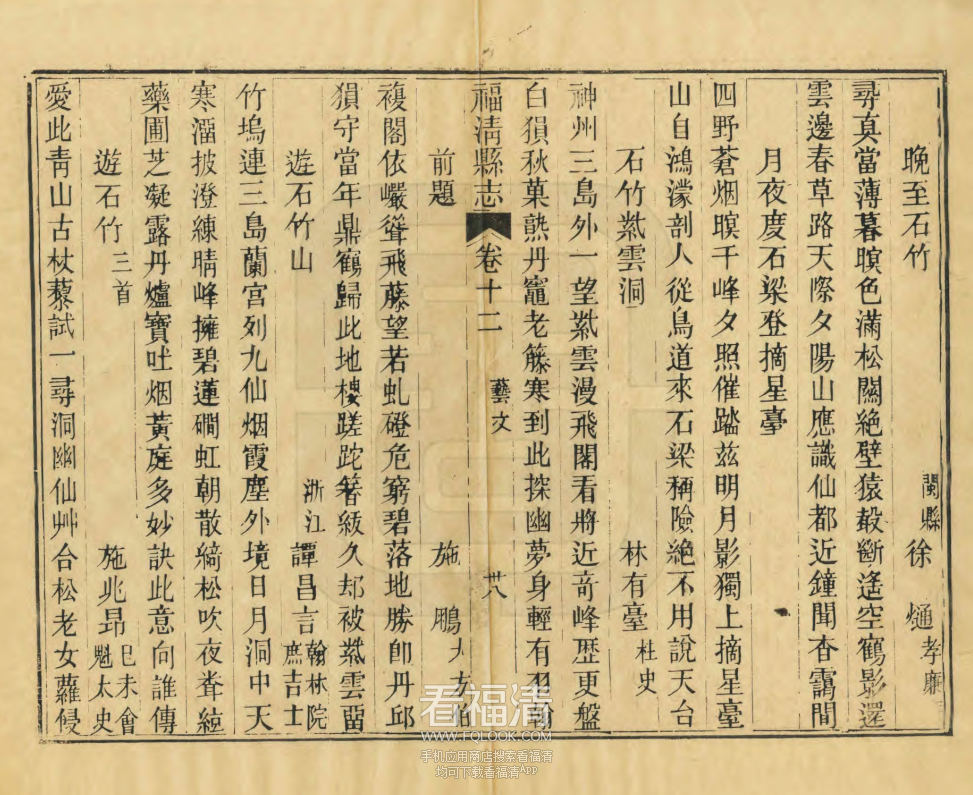 晚至石竹 閩縣徐𤊹孝廉
尋真當薄暮暝色滿松關絕壁猿聲斷遙空鶴影還
雲邊春草路天際夕陽山應識仙都近鐘聞杳靄間
月夜度石梁登摘星臺
四野蒼烟暝千峰夕照催踏茲明月影獨上摘星臺
山自鴻濛剖人從鳥道來石梁稱險絕不用說天台
石竹紫雲洞 林有臺柱史
神州三島外一望紫雲漫飛閣看將近奇峰歷更盤
白猿秋菓熟丹竈老籐寒到此探幽夢身輕有羽翰
福淸縣志 卷十二 藝文 卅八
前題 施鵬方伯
複閣依巖聳飛藤望若虬磴危窮碧落地勝卽丹邱
猿守當年鼎鶴歸此地樓蹉跎簪紱久却被紫雲畱
遊石竹山 浙江譚昌言翰林院庶吉士
竹塢連三島蘭宮列九仙烟霞塵外境日月洞中天
寒溜披澄練晴峰擁碧蓮磵虹朝散綺松吹夜聋絃
藥圃芝凝露丹爐寶吐烟黃庭多妙訣此意向誰傳
遊石竹三首 施兆昂己未會魁太史
愛此靑山古杖藜試一尋洞幽仙艸合松老女蘿侵
看福清
WWW.FOLOOK.COM
手机应用商店搜索看福清
均可下载看福清APP